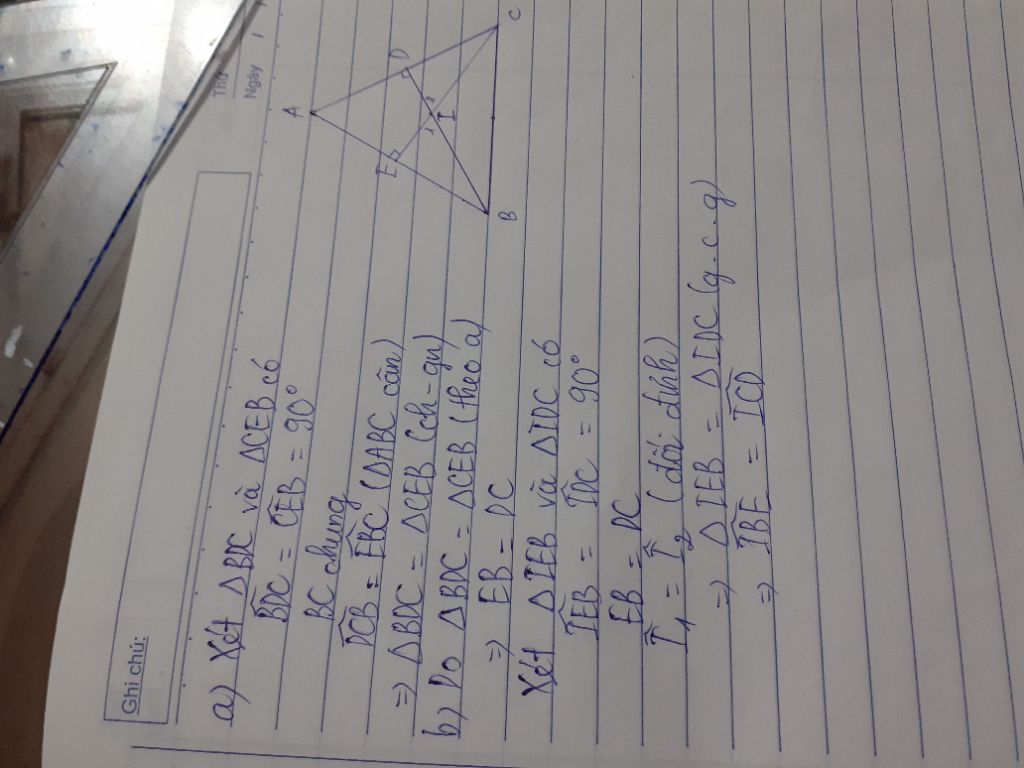 Ghi chú:
Thứ
Ngày
a) Xét ΔBDC và ΔCEB có
B̂DC = ĈEB = 90°
BC chung
D̂CB = ÊBC (ΔABC cân)
=> ΔBDC = ΔCEB (ch-gn)
b) Do ΔBDC = ΔCEB (theo a)
=> EB = DC
Xét ΔIEB và ΔIDC có
ÎEB = ÎDC = 90°
EB = DC
Î1 = Î2 (đối đỉnh)
=> ΔIEB = ΔIDC (g.c.g)
=> ÎBE = ÎCD
A
E
D
1
I
B
C